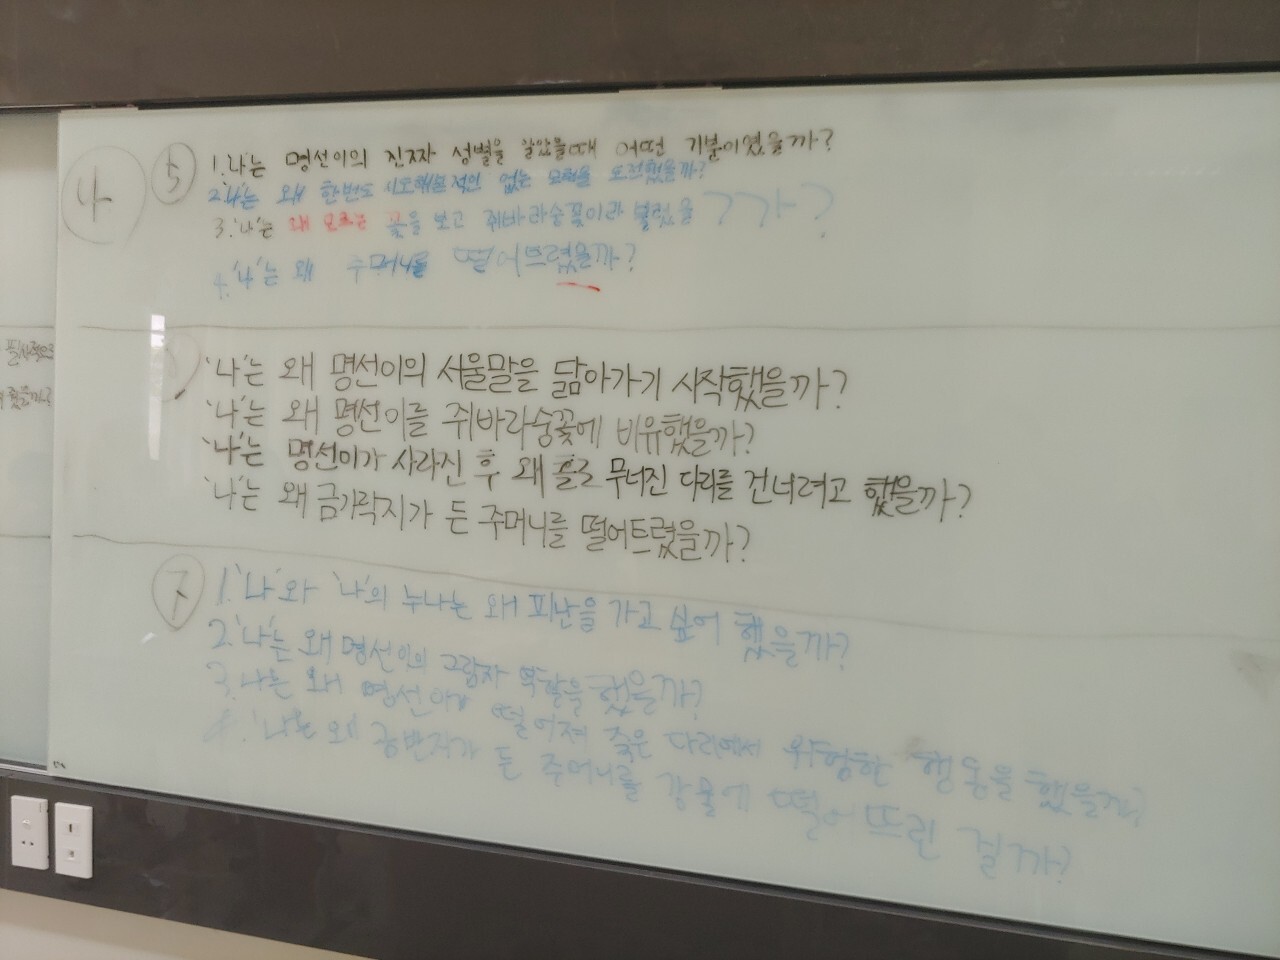 4
5
1. '나'는 명선이의 진짜 성별을 알았을때 어떤 기분이였을까?
2. '나'는 왜 한번도 시도해본적이 없는 모험을 도전했을까?
3. '나'는 왜 모르는 꽃을 보고 쥐바라숭꽃이라 불렀을까?
4. '나'는 왜 주머니를 떨어뜨렸을까?
필사적으로
했을까?
'나'는 왜 명선이의 서울말을 닮아가기 시작했을까?
'나'는 왜 명선이를 쥐바라숭꽃에 비유했을까?
'나'는 명선이가 사라진 후 왜 홀로 무너진 다리를 건너려고 했을까?
'나'는 왜 금가락지가 든 주머니를 떨어트렸을까?
7
1. '나'와 '나'의 누나는 왜 피난을 가고 싶어 했을까?
2. '나'는 왜 명선이의 그림자 역할을 했을까?
3. 나는 왜 명선이가 떨어져 죽은 다리에서 위험한 행동을 했을까?
4. '나'는 왜 금반지가 든 주머니를 강물에 떨어뜨린 걸까?